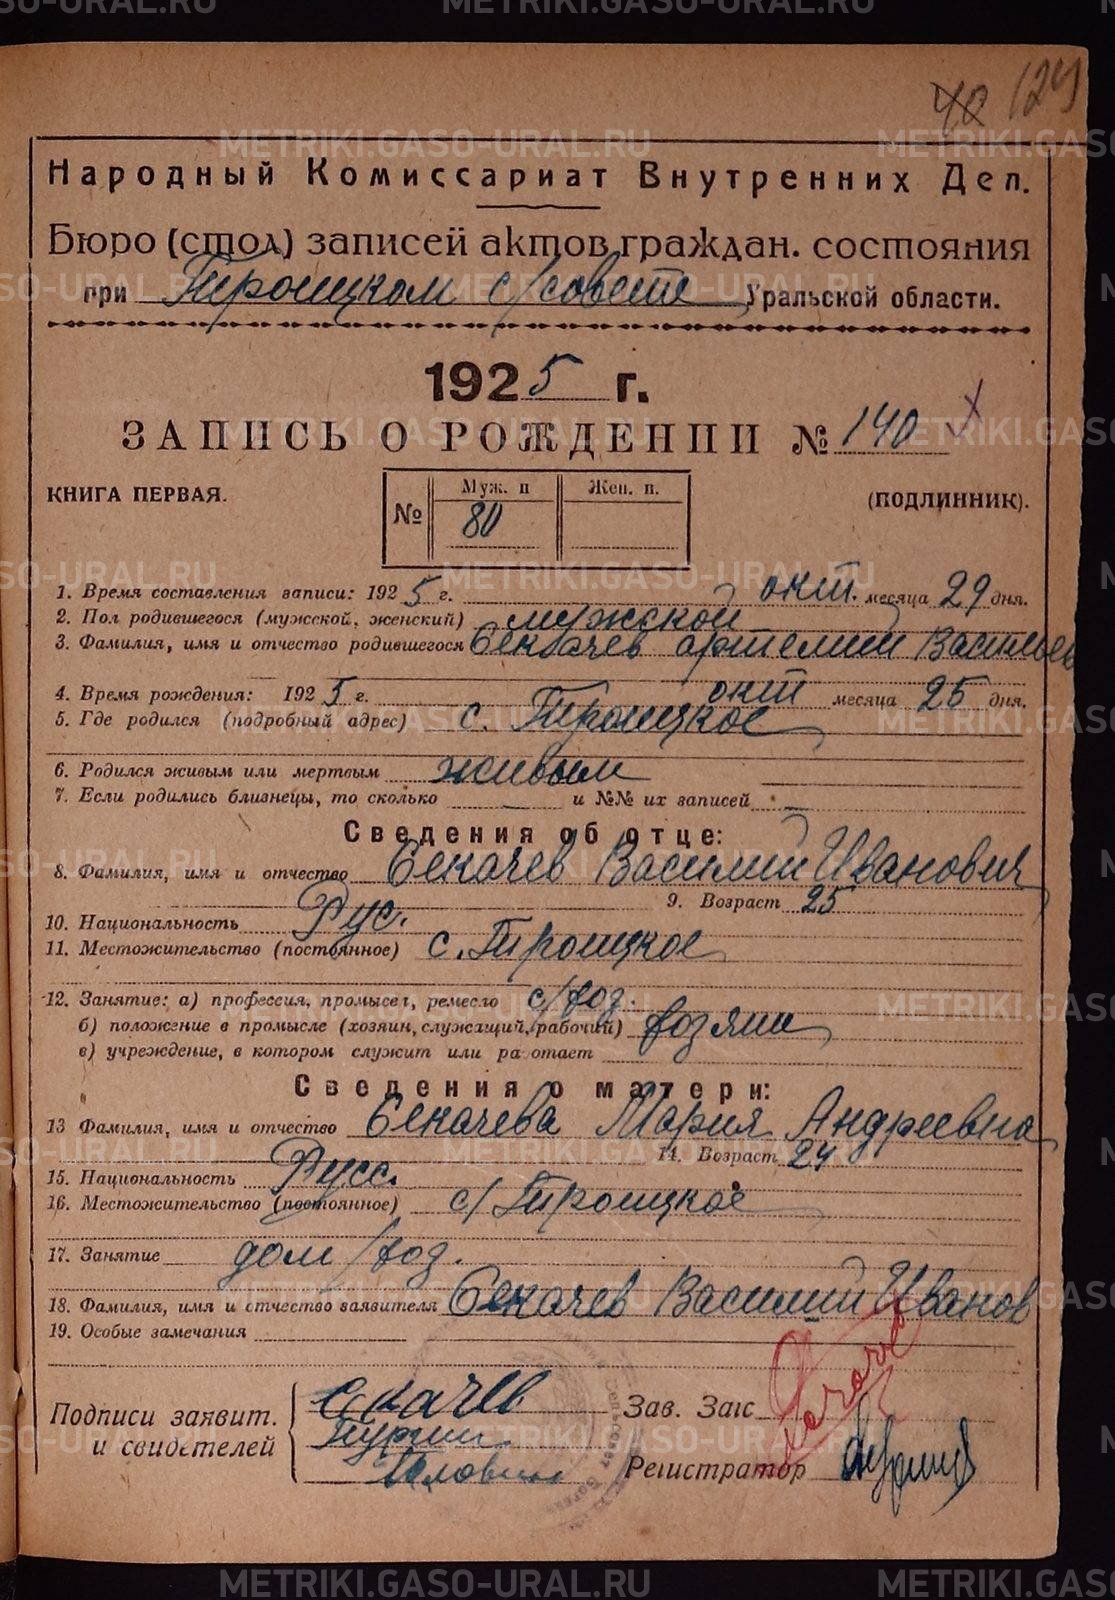 40 129
Народный Комиссариат Внутренних Дел.
Бюро (стол) записей актов граждан. состояния
при Троицком с/совете Уральской области.
1925 г.
ЗАПИСЬ О РОЖДЕНИИ № 140
КНИГА ПЕРВАЯ.
(ПОДЛИННИК).
№ Муж. п Жен. п.
80
1. Время составления записи: 1925 г. окт. месяца 29 дня.
2. Пол родившегося (мужской, женский) мужской
3. Фамилия, имя и отчество родившегося Секачев Артемий Васильев
4. Время рождения: 1925 г. окт месяца 25 дня.
5. Где родился (подробный адрес) с. Троицкое
6. Родился живым или мертвым живым
7. Если родились близнецы, то сколько — и №№ их записей —
Сведения об отце:
8. Фамилия, имя и отчество Секачев Василий Иванович
9. Возраст 25
10. Национальность Рус.
11. Местожительство (постоянное) с. Троицкое
12. Занятие: а) профессия, промысел, ремесло с/хоз.
б) положение в промысле (хозяин, служащий, рабочий) хозяин
в) учреждение, в котором служит или работает
Сведения о матери:
13 Фамилия, имя и отчество Секачева Мария Андреевна
14. Возраст 24
15. Национальность Русс.
16. Местожительство (постоянное) с/ Троицкое
17. Занятие дом/хоз.
18. Фамилия, имя и отчество заявителя Секачев Василий Иванов
19. Особые замечания
Подписи заявит.
и свидетелей
Скачев
Зав. Загс
Регистратор
METRIKI.GASO-URAL.RU